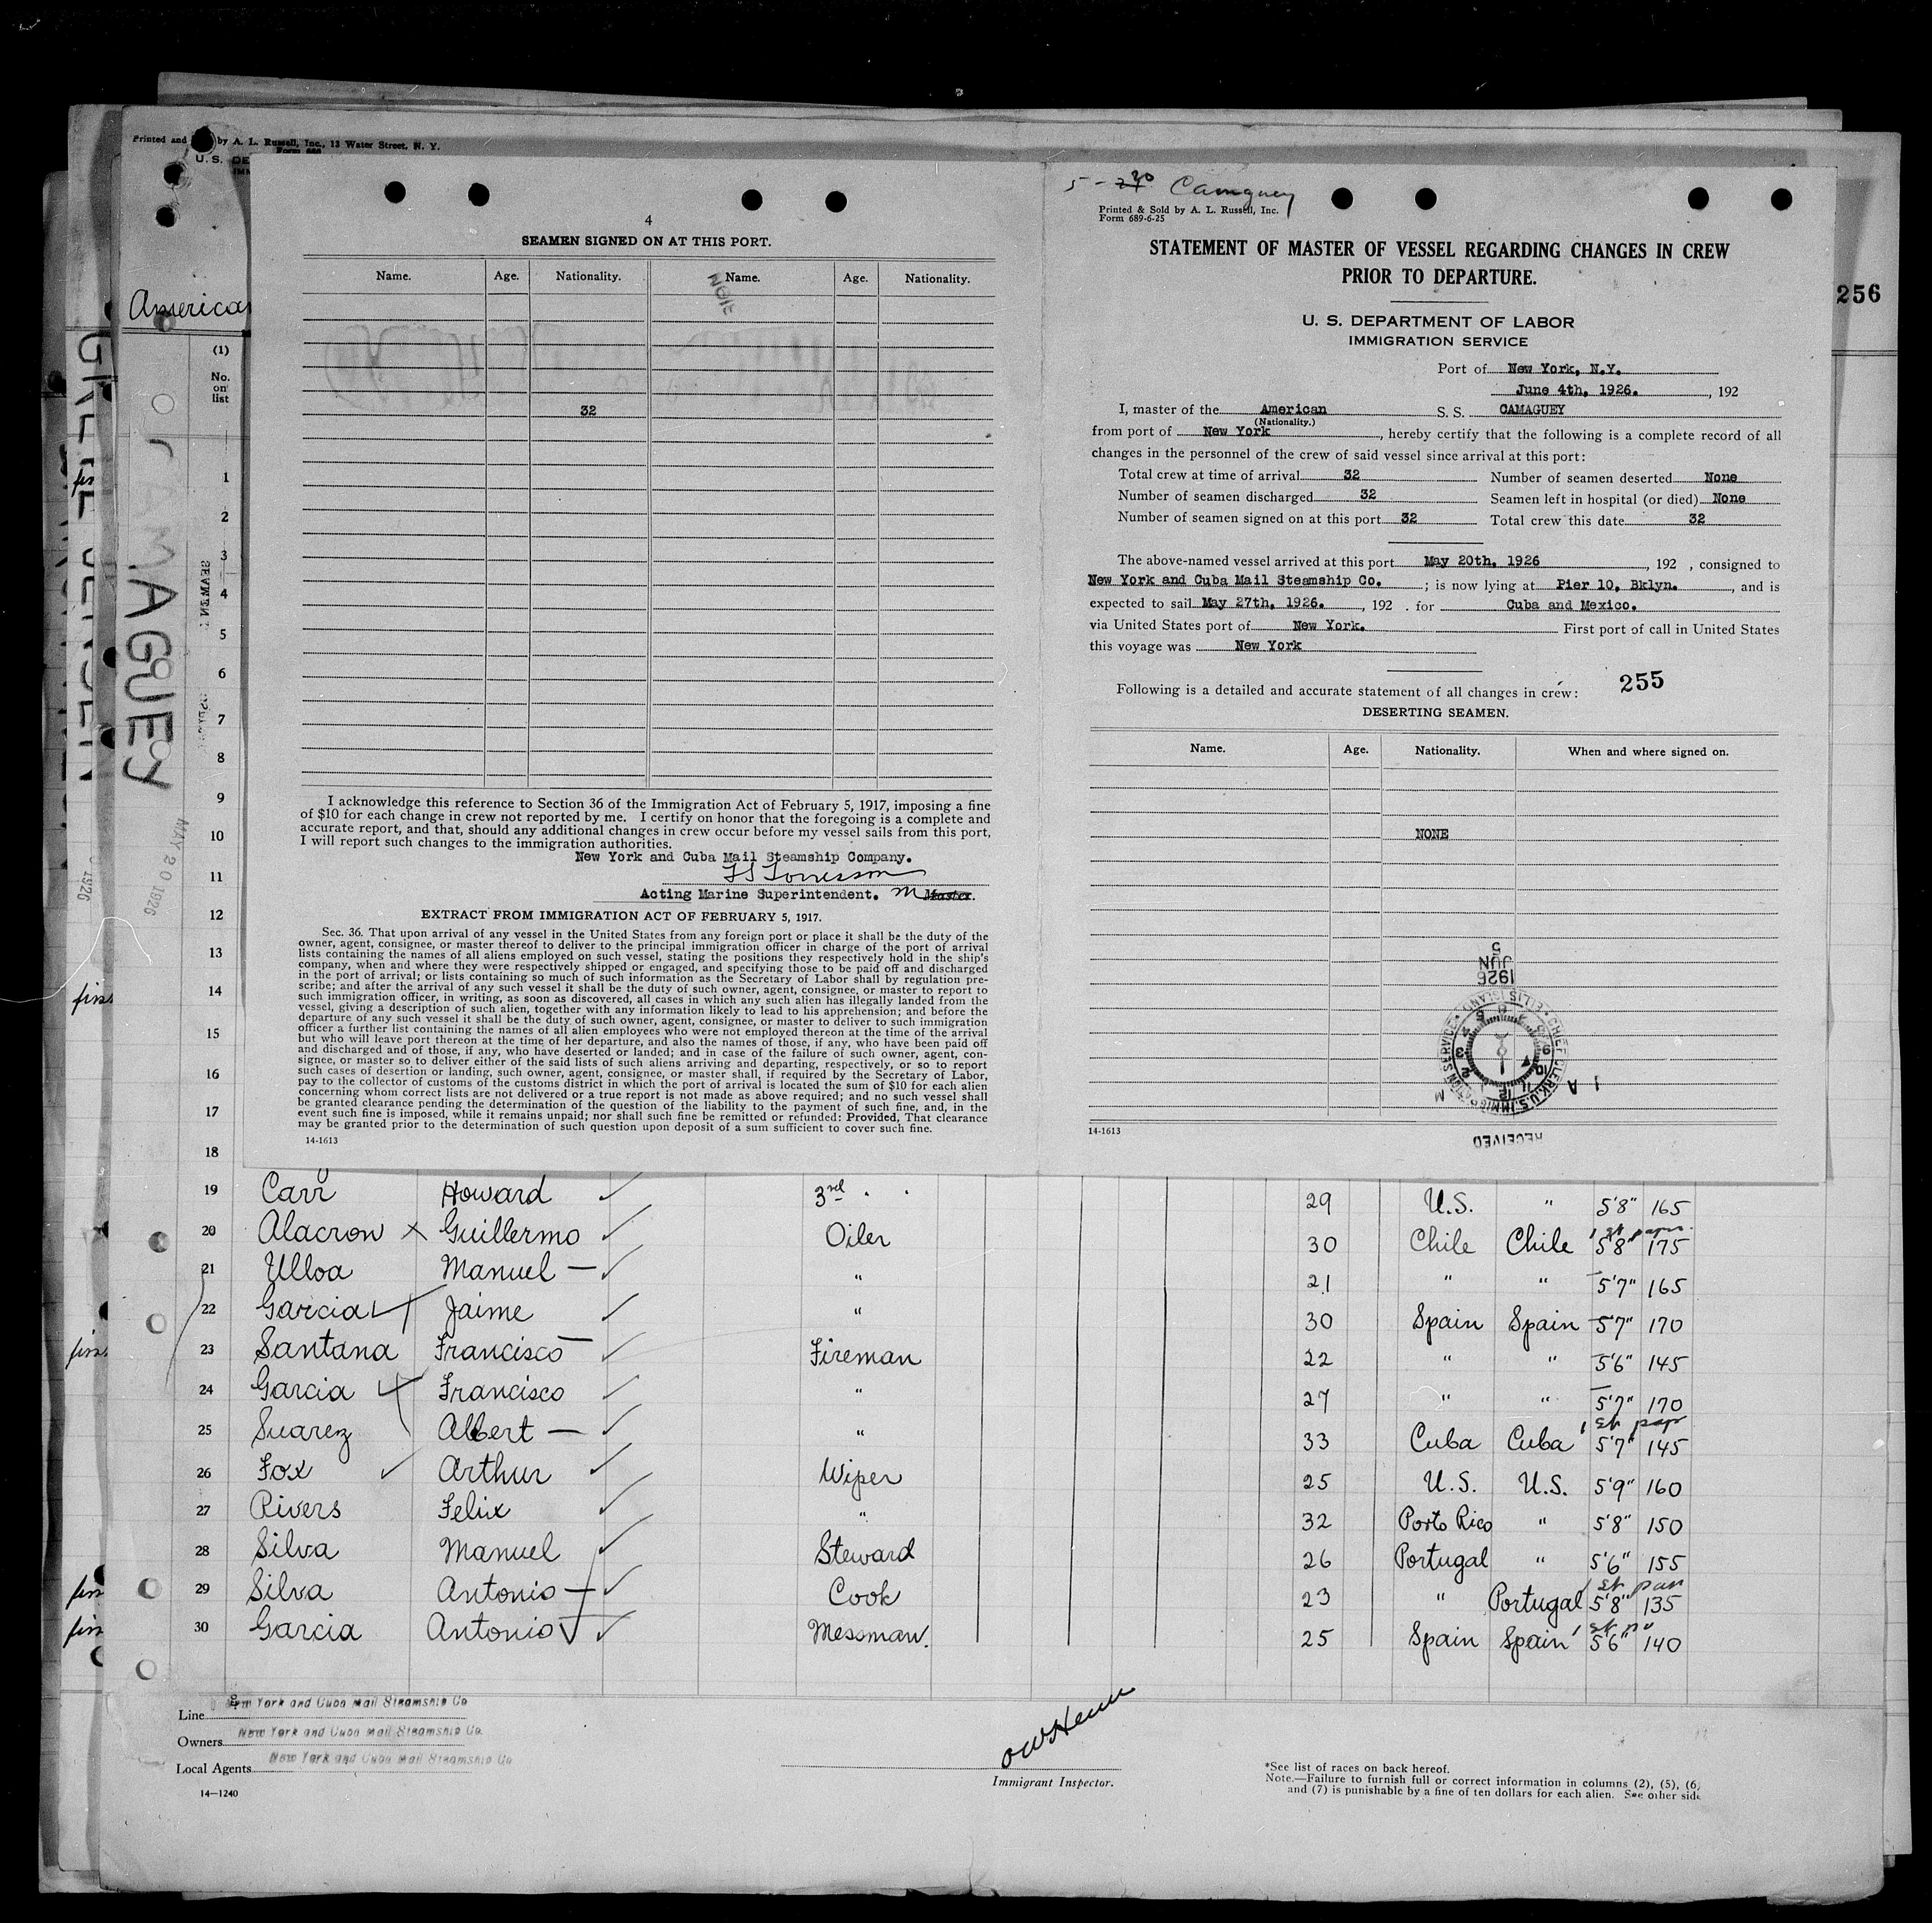 Printed and by A. L. Russell, Inc., 13 Water Street, N. Y.
Form 680
U. S. DE
IMM
American
(1)
No.
on
list
CAMAGUEY
MAY 20 1926
1926
SEAMEN
256
1
2
3
4
5
6
7
8
9
10
11
12
13
14
15
16
17
18
4
SEAMEN SIGNED ON AT THIS PORT.
Name. Age. Nationality. Name. Age. Nationality.
32
I acknowledge this reference to Section 36 of the Immigration Act of February 5, 1917, imposing a fine
of $10 for each change in crew not reported by me. I certify on honor that the foregoing is a complete and
accurate report, and that, should any additional changes in crew occur before my vessel sails from this port,
I will report such changes to the immigration authorities.
New York and Cuba Mail Steamship Company.
Acting Marine Superintendent. Master.
EXTRACT FROM IMMIGRATION ACT OF FEBRUARY 5, 1917.
Sec. 36. That upon arrival of any vessel in the United States from any foreign port or place it shall be the duty of the
owner, agent, consignee, or master thereof to deliver to the principal immigration officer in charge of the port of arrival
lists containing the names of all aliens employed on such vessel, stating the positions they respectively hold in the ship's
company, when and where they were respectively shipped or engaged, and specifying those to be paid off and discharged
in the port of arrival; or lists containing so much of such information as the Secretary of Labor shall by regulation pre-
scribe; and after the arrival of any such vessel it shall be the duty of such owner, agent, consignee, or master to report to
such immigration officer, in writing, as soon as discovered, all cases in which any such alien has illegally landed from the
vessel, giving a description of such alien, together with any information likely to lead to his apprehension; and before the
departure of any such vessel it shall be the duty of such owner, agent, consignee, or master to deliver to such immigration
officer a further list containing the names of all alien employees who were not employed thereon at the time of the arrival
but who will leave port thereon at the time of her departure, and also the names of those, if any, who have been paid off
and discharged and of those, if any, who have deserted or landed; and in case of the failure of such owner, agent, con-
signee, or master so to deliver either of the said lists of such aliens arriving and departing, respectively, or so to report
such cases of desertion or landing, such owner, agent, consignee, or master shall, if required by the Secretary of Labor,
pay to the collector of customs of the customs district in which the port of arrival is located the sum of $10 for each alien
concerning whom correct lists are not delivered or a true report is not made as above required; and no such vessel shall
be granted clearance pending the determination of the question of the liability to the payment of such fine, and, in the
event such fine is imposed, while it remains unpaid; nor shall such fine be remitted or refunded: Provided, That clearance
may be granted prior to the determination of such question upon deposit of a sum sufficient to cover such fine.
14-1613
5-20 Camaguey
Printed & Sold by A. L. Russell, Inc.
Form 689-6-25
STATEMENT OF MASTER OF VESSEL REGARDING CHANGES IN CREW
PRIOR TO DEPARTURE.
U. S. DEPARTMENT OF LABOR
IMMIGRATION SERVICE
Port of New York, N.Y.
June 4th, 1926. , 192
I, master of the American S. S. CAMAGUEY
(Nationality.)
from port of New York , hereby certify that the following is a complete record of all
changes in the personnel of the crew of said vessel since arrival at this port:
Total crew at time of arrival 32 Number of seamen deserted None
Number of seamen discharged 32 Seamen left in hospital (or died) None
Number of seamen signed on at this port 32 Total crew this date 32
The above-named vessel arrived at this port May 20th, 1926 , 192 , consigned to
New York and Cuba Mail Steamship Co. ; is now lying at Pier 10, Bklyn. , and is
expected to sail May 27th, 1926. , 192 . for Cuba and Mexico.
via United States port of New York. First port of call in United States
this voyage was New York
Following is a detailed and accurate statement of all changes in crew: 255
DESERTING SEAMEN.
Name. Age. Nationality. When and where signed on.
NONE
1926
JUN
5
CHIEF CLERK, U.S. IMMIGRATION SERVICE · ELLIS ISLAND ·
RECEIVED
14-1613
19 Carr Howard 3rd " " 29 U.S. " 5'8" 165
20 Alacron Guillermo Oiler 30 Chile Chile 5'8" 175
21 Ulloa Manuel " 21 " " 5'7" 165
22 Garcia Jaime " 30 Spain Spain 5'7" 170
23 Santana Francisco Fireman 22 " " 5'6" 145
24 Garcia Francisco " 27 " " 5'7" 170
25 Suarez Albert " 33 Cuba Cuba 5'7" 145
26 Fox Arthur Wiper 25 U.S. U.S. 5'9" 160
27 Rivers Felix " 32 Porto Rico " 5'8" 150
28 Silva Manuel Steward 26 Portugal " 5'6" 155
29 Silva Antonio Cook 23 " Portugal 5'8" 135
30 Garcia Antonio Messman. 25 Spain Spain 5'6" 140
Line New York and Cuba Mail Steamship Co
Owners New York and Cuba Mail Steamship Co.
Local Agents New York and Cuba Mail Steamship Co
14—1240
Immigrant Inspector.
*See list of races on back hereof.
Note.—Failure to furnish full or correct information in columns (2), (5), (6)
and (7) is punishable by a fine of ten dollars for each alien. See other side